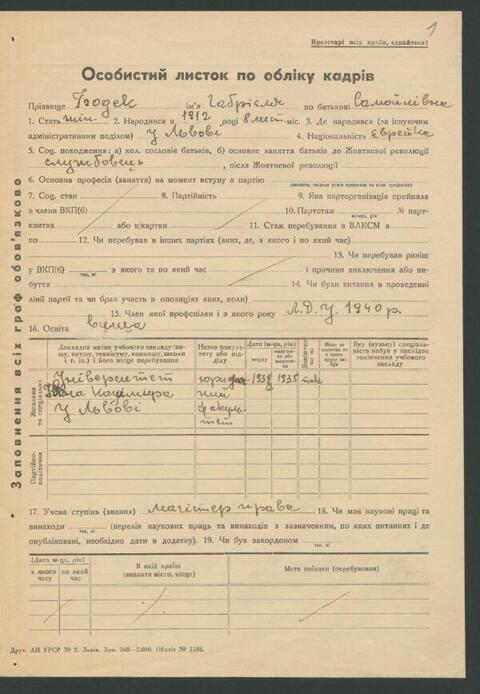 1
Пролетарі всіх країн, єднайтеся!
Особистий листок по обліку кадрів
Прізвище Бодек ім'я Габрієля по батькові Самойлівна
1. Стать жін. 2. Народився в 1912 році 8 міс. 3. Де народився (за існуючим
адміністративним поділом) у Львові 4. Національність єврейка
5. Соц. походження: а) кол. сословіє батьків, б) основне заняття батьків до Жовтневої революції
службовець, після Жовтневої революції
6. Основна професія (заняття) на момент вступу в партію
7. Соц. стан 8. Партійність 9. Яка парторганізація прийняла
в члени ВКП(б) 10. Партстаж № парт-
квитка або к/картки 11. Стаж перебування в ВЛКСМ з
по 12. Чи перебував в інших партіях (яких, де, з якого і по який час)
13. Чи перебував раніш
у ВКП(б) з якого та по який час і причини виключення або ви-
буття 14. Чи були хитання в проведенні
лінії партії та чи брав участь в опозиціях яких, коли)
15. Член якої профспілки і з якого року Л.Д.У 1940 р.
16. Освіта вища
Заповнення всіх граф обов'язково
Докладна назва учбового закладу (ви-
шу, втишу, технікуму, комвишу, школи
і т. ін.) і його місце перебування
Назва факуль-
тету або від-
ділу
Дата (м-ць, рік)
вступу
Яку (вузьку) спеціаль-
ність набув в наслідок
закінчення учбового
закладу
Загальна та спеціальна
Університет юридич- 1935 так
Яна Казимира ний
у Львові факуль-
тет
Партійно-політична
17. Учена ступінь (звання) магістер права 18. Чи має наукові праці та
винаходи (перелік наукових праць та винаходів з зазначенням, по яких питаннях і де
опубліковані, необхідно дати в додатку). 19. Чи був закордоном
Дата (м-ць, рік)
з якого часу
по який час
В якій країні
(вказати місто, місце)
Мета поїздки (перебування)
Друк. АН УРСР № 2. Львів. Зам. 368—2.000. Обліт № 1186.